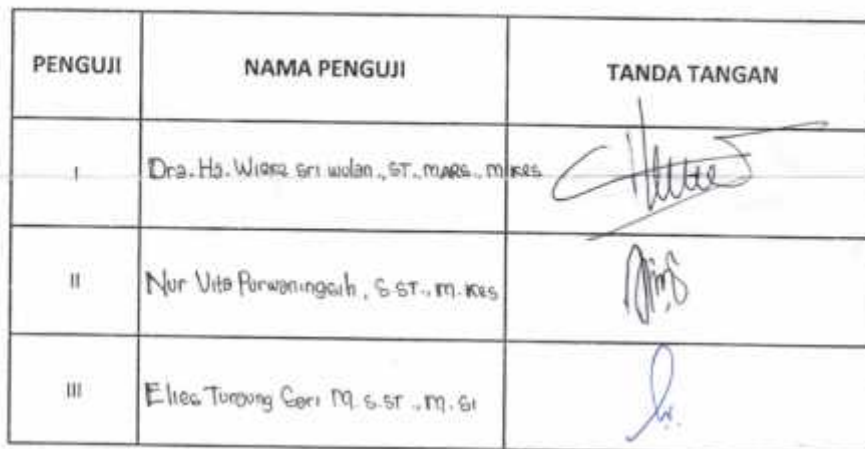 PENGUJI NAMA PENGUJI TANDA TANGAN
I Dra. Hj. Wieke Sri Wulan., ST., MARS., M.Kes
II Nur Vita Purwaningsih, S.ST., M.Kes
III Elies Tunjung Sari M. S.ST., M.Si